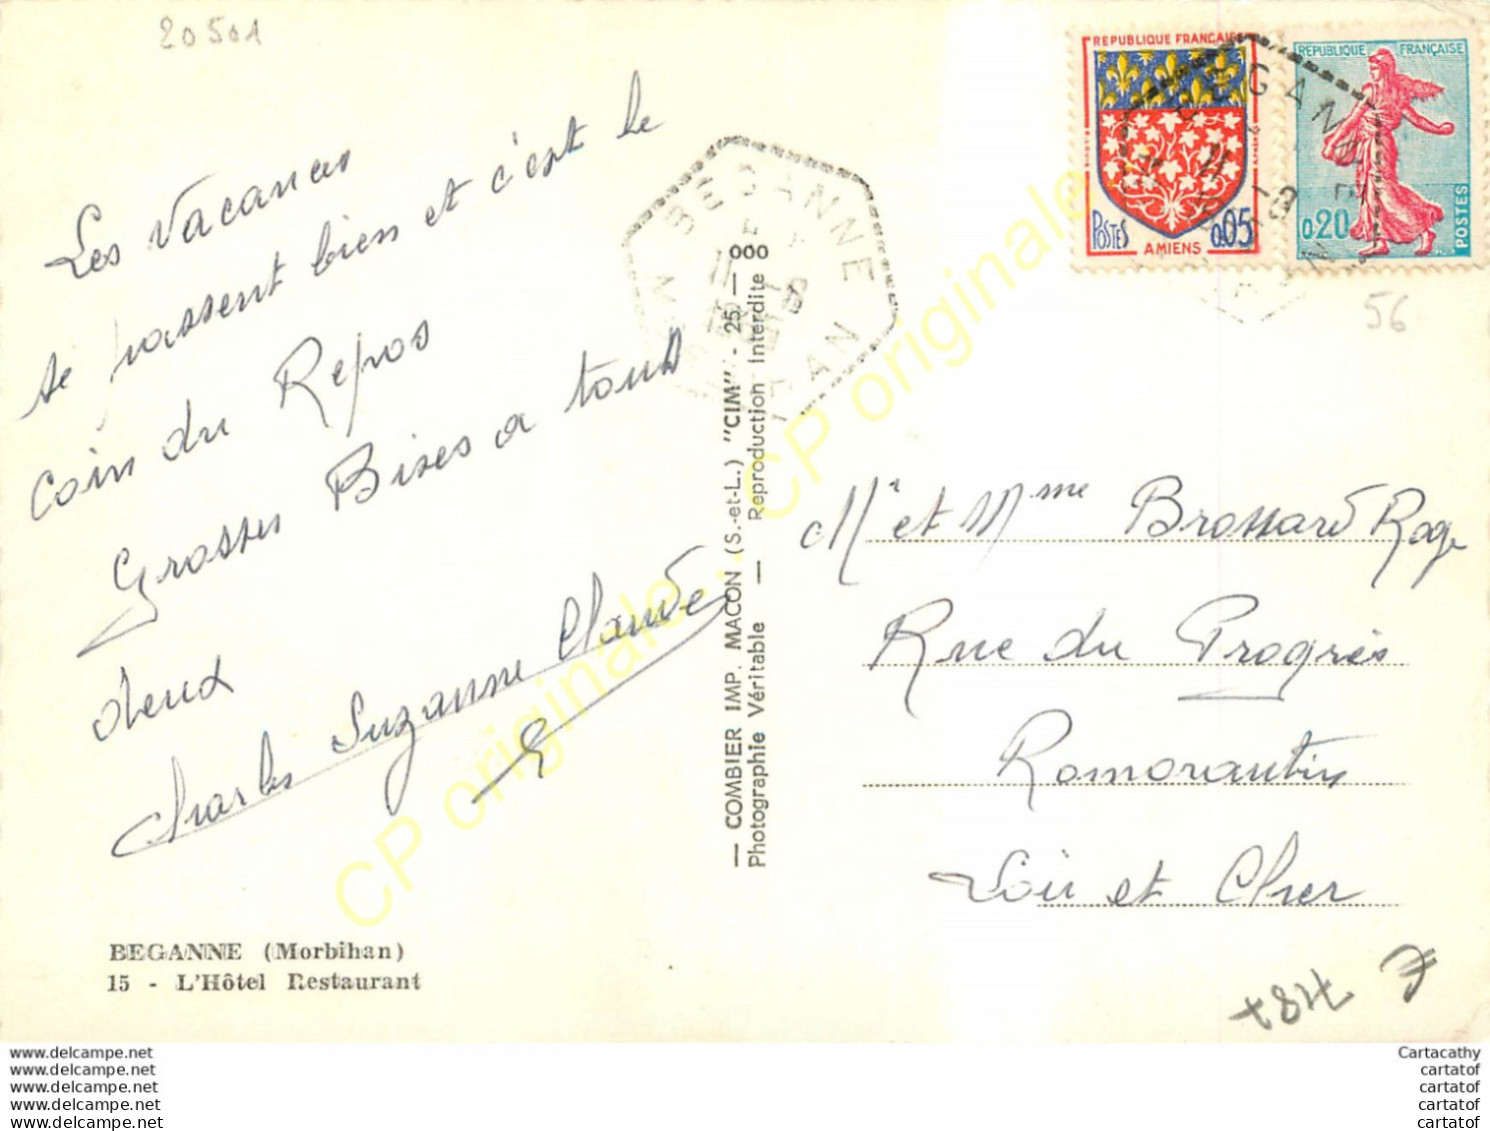 20501
Les vacances
se passent bien et c'est le
coin du Repos
Grosses Bises a tous
deux
Charles Suzanne Claude
BEGANNE (Morbihan)
15 - L'Hôtel Restaurant
— COMBIER IMP. MACON (S.-et-L.) "CIM" - 25 — 000
Photographie Véritable — Reproduction Interdite
BEGANNE
MORBIHAN
REPUBLIQUE FRANÇAISE
POSTES AMIENS 0.05
REPUBLIQUE FRANÇAISE
0.20 POSTES
BEGANNE
56
Mr et Mme Brossard Roge
Rue du Progrès
Romorantin
Loir et Cher
CP originale... CP originale... CP originale
www.delcampe.net
www.delcampe.net
www.delcampe.net
www.delcampe.net
www.delcampe.net
Cartacathy
cartatof
cartatof
cartatof
cartatof